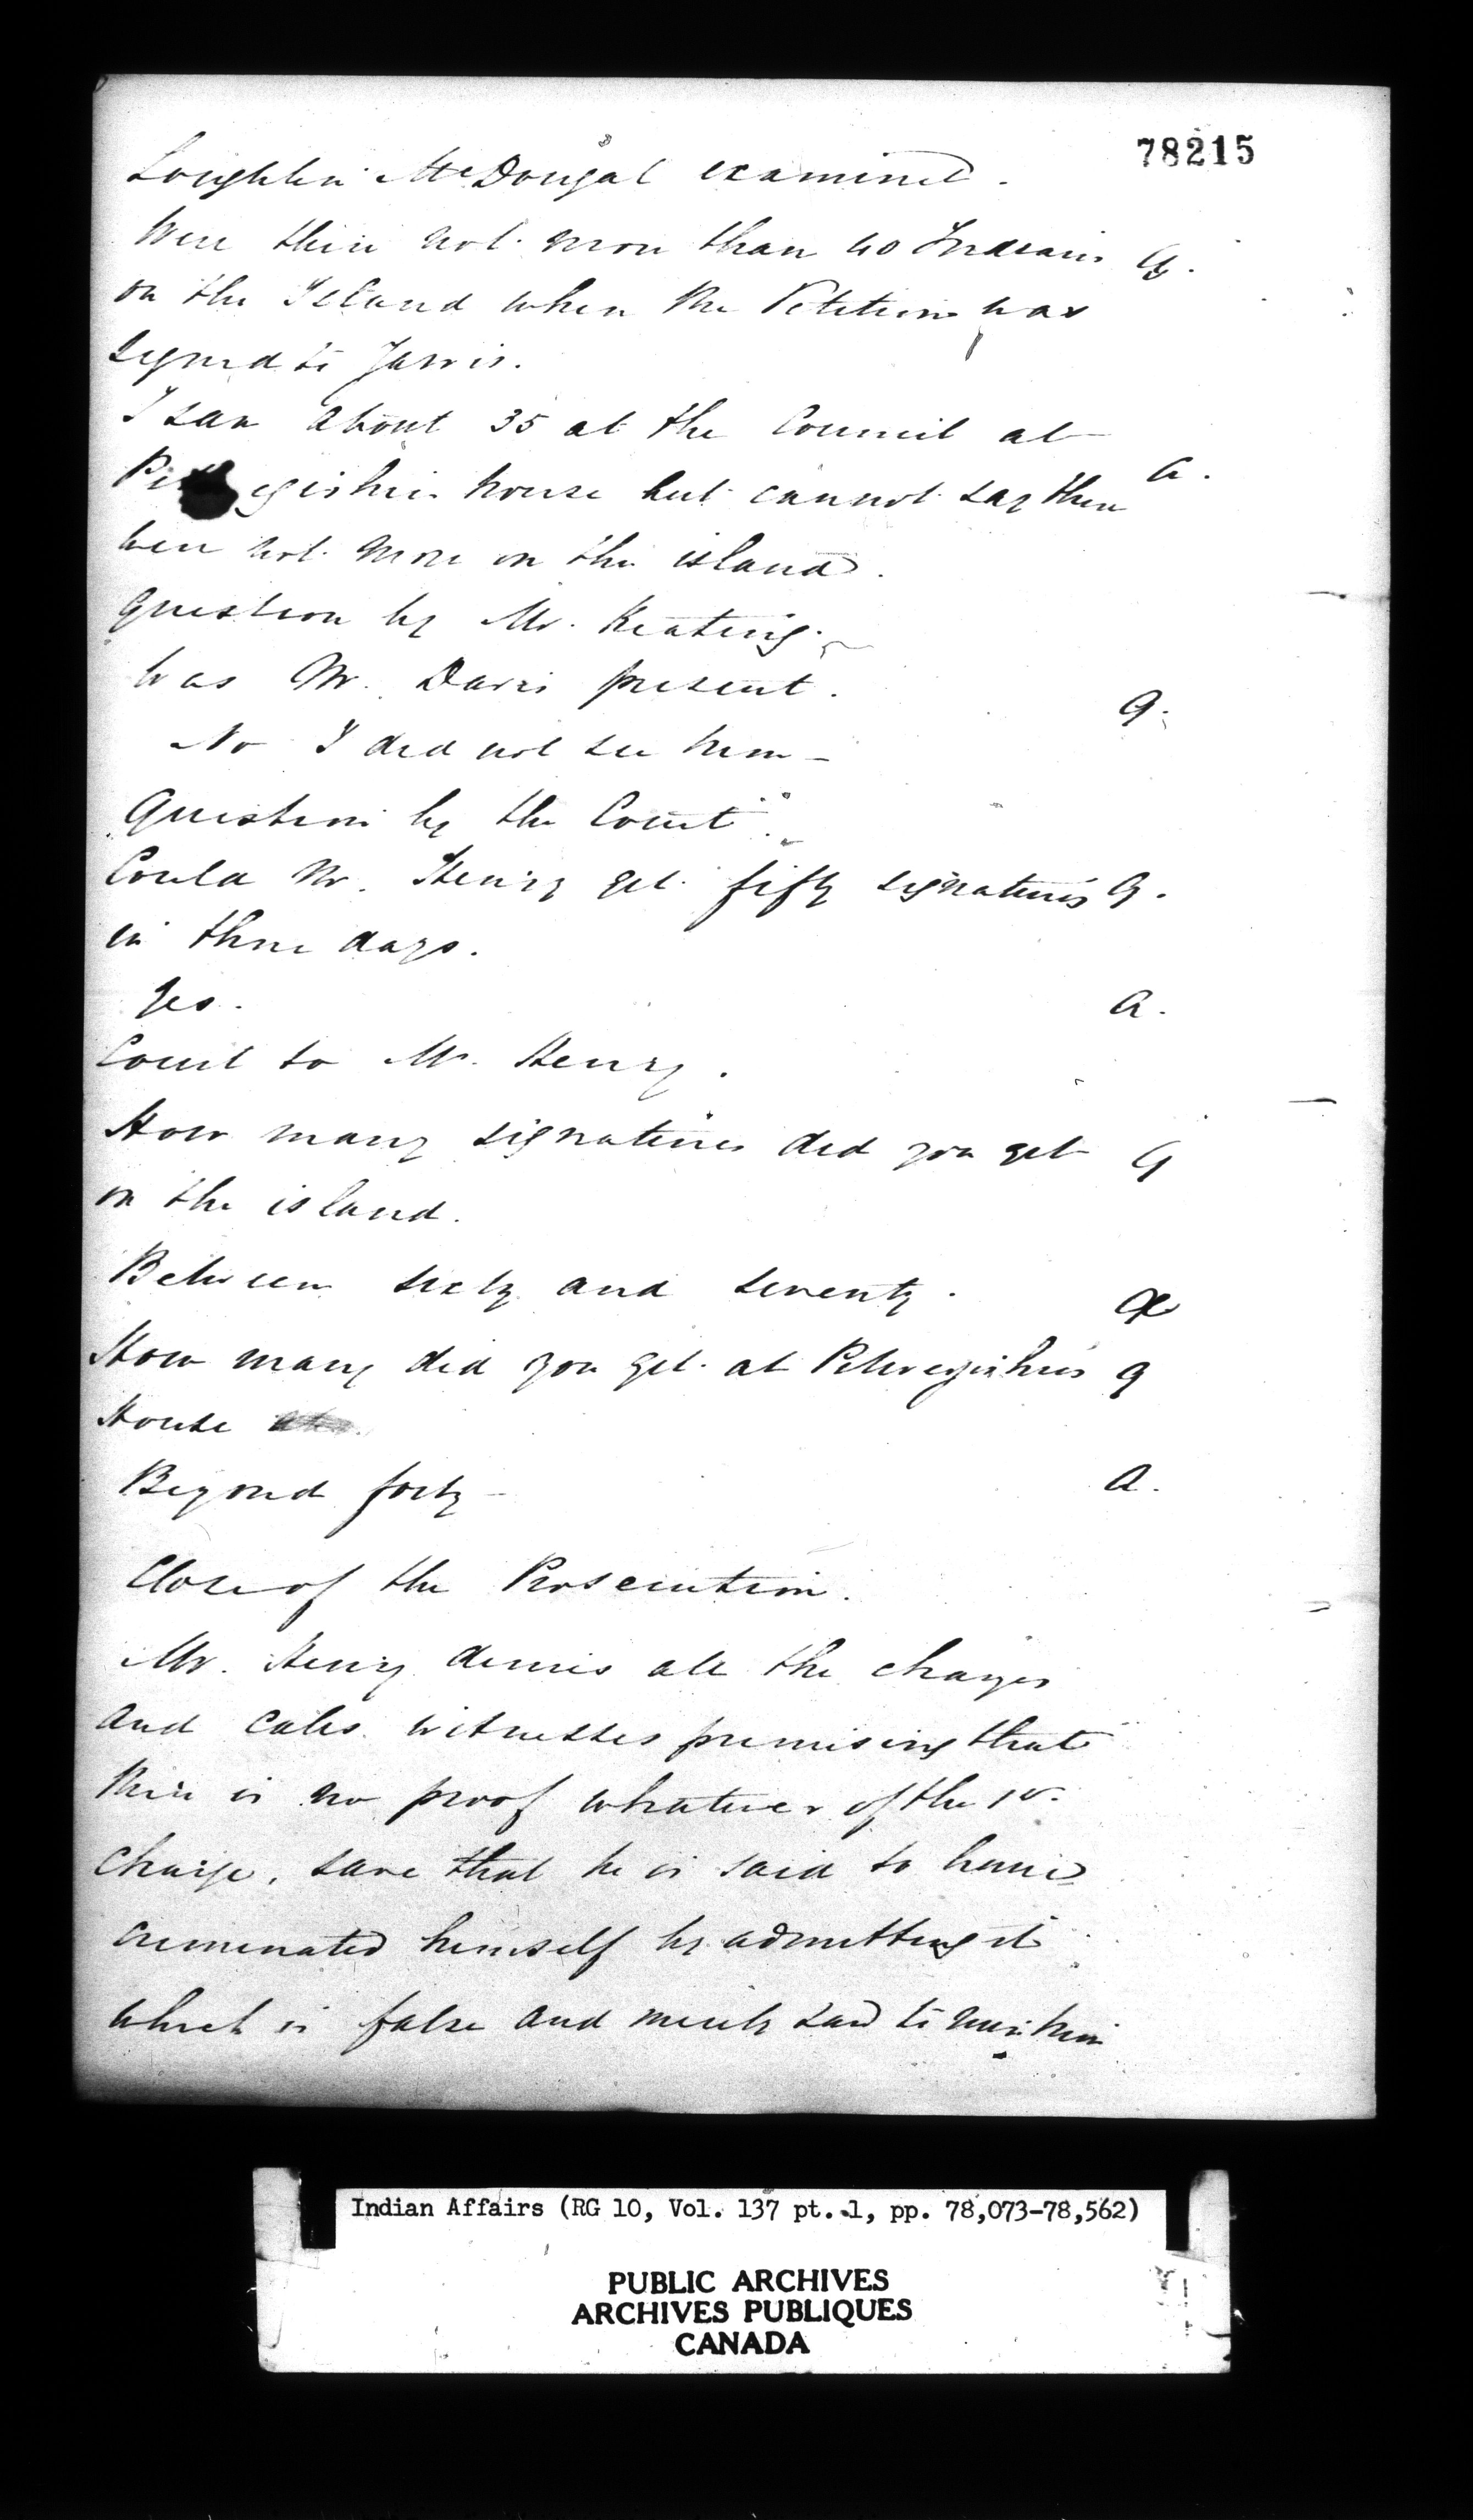 78215
Loughlin McDougal examined.
Were there not more than 40 Indians Q.
on the Island when the Petition was
signed to Jarvis.
I saw about 35 at the Council at
house but cannot say there A.
were not more on the island.
Question by Mr. Keating.
Was Mr. Davis present. Q.
No I did not see him _
Question by the Court.
Could Mr. Henry get fifty signatures Q.
in three days.
Yes. A.
Court to Mr. Henry.
How many signatures did you get Q
on the island.
Between sixty and seventy. A
How many did you get at Petwegishies Q
House
Beyond forty _ A.
Close of the Prosecution.
Mr. Henry denies all the charges
and calls witnesses premising that
there is no proof whatever of the 1st.
charge, save that he is said to have
criminated himself by admitting it
which is false and merely said to ruin him
Indian Affairs (RG 10, Vol. 137 pt. 1, pp. 78,073-78,562)
PUBLIC ARCHIVES
ARCHIVES PUBLIQUES
CANADA